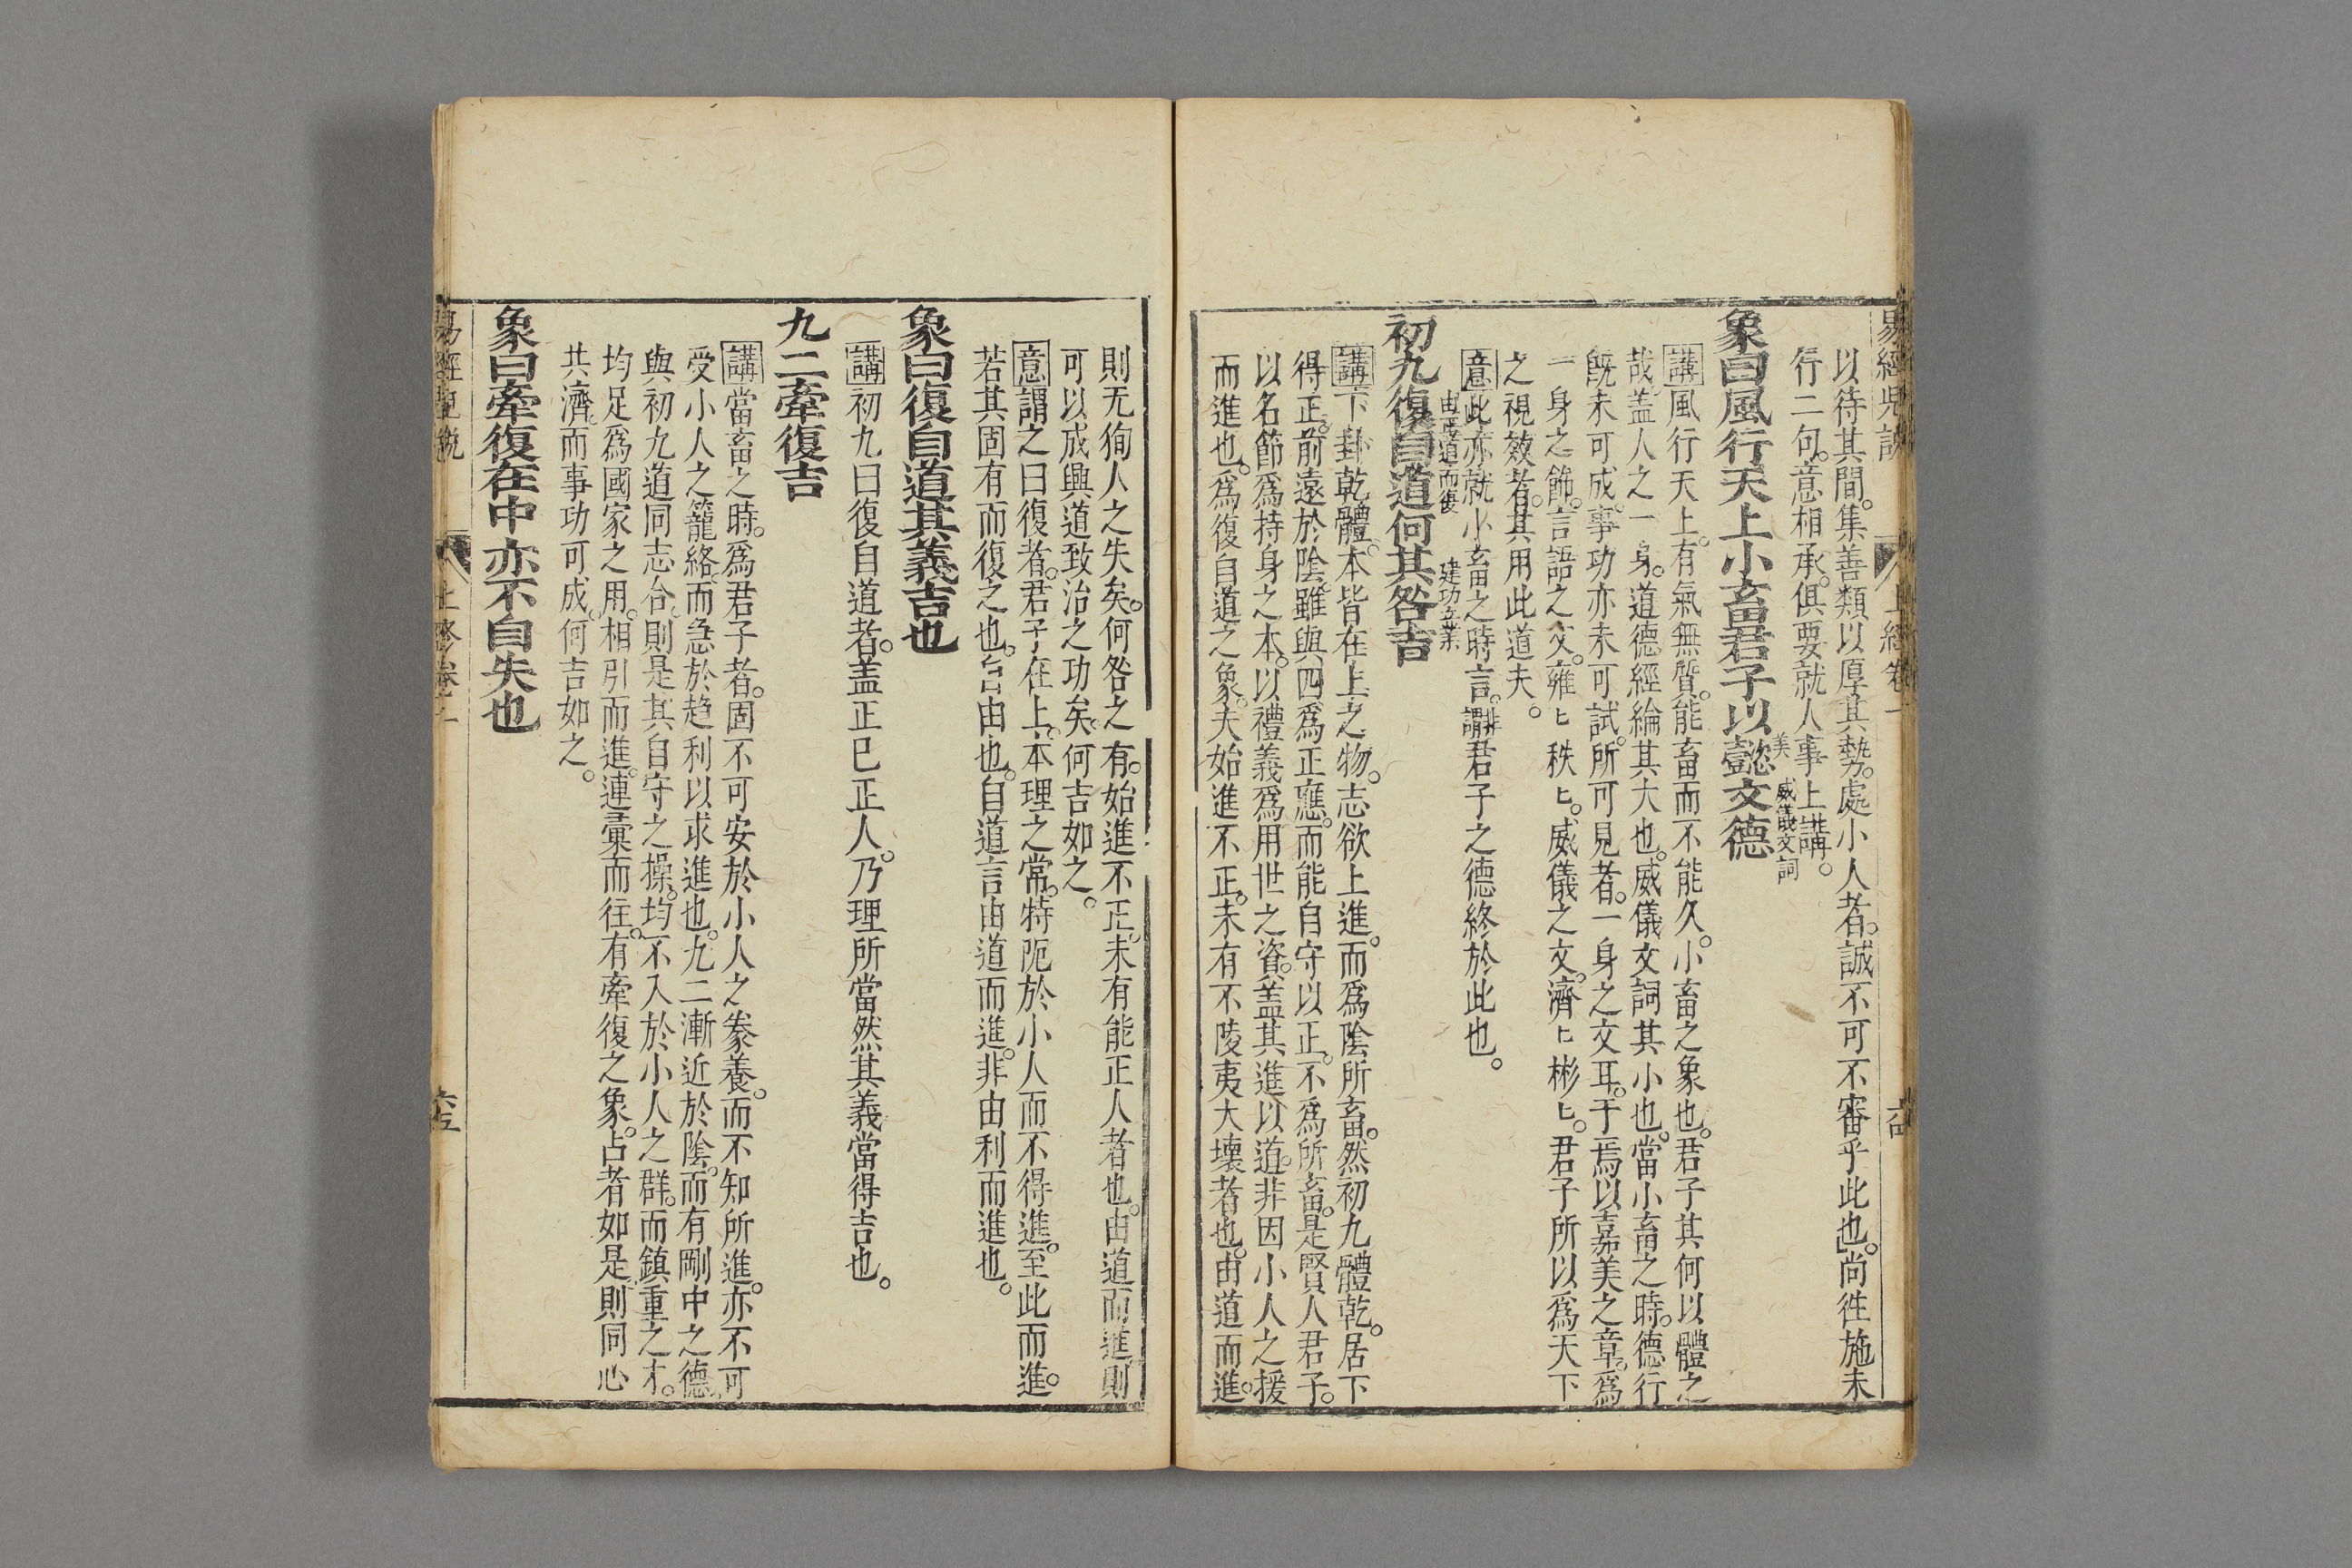 易經兒説
上經卷一
以待其間。集善類以厚其勢。處小人者。誠不可不審乎此也。尚徃施未
行二句。意相承。俱要就人事上講。
象曰風行天上小畜君子以懿文德
美 威儀文詞
講風行天上。有氣無質。能畜而不能久。小畜之象也。君子其何以體之
哉。盖人之一身。道德經綸其大也。威儀文詞其小也。當小畜之時。德行
旣未可成。事功亦未可試。所可見者。一身之文耳。于焉以嘉美之章。爲
一身之飾。言語之文。雍〻秩〻。威儀之文。濟〻彬〻。君子所以爲天下
之視效者。其用此道夫。
意此亦就小畜之時言。非謂君子之德終於此也。
由正道而復 建功立業
初九復自道何其咎吉
講下卦乾體。本皆在上之物。志欲上進。而爲陰所畜。然初九體乾。居下
得正。前遠於陰。雖與四爲正應。而能自守以正。不爲所畜。是賢人君子。
以名節爲持身之本。以禮義爲用世之資。盖其進以道。非因小人之援
而進也。爲復自道之象。夫始進不正。未有不陵夷大壞者也。由道而進。
則无狥人之失矣。何咎之有。始進不正。未有能正人者也。由道而進。則
可以成興道致治之功矣。何吉如之。
意謂之曰復者。君子在上。本理之常。特阨於小人而不得進。至此而進。
若其固有而復之也。自由也。自道言由道而進。非由利而進也。
象曰復自道其義吉也
講初九曰復自道者。盖正巳正人。乃理所當然其義當得吉也。
九二牽復吉
講當畜之時。爲君子者。固不可安於小人之豢養。而不知所進。亦不可
受小人之籠絡。而急於趋利以求進也。九二漸近於陰。而有剛中之德。
與初九道同志合。則是其自守之操。均不入於小人之群。而鎮重之才。
均足爲國家之用。相引而進。連彙而往。有牽復之象。占者如是。則同心
共濟。而事功可成。何吉如之。
象曰牽復在中亦不自失也
易經兒説
上經卷一